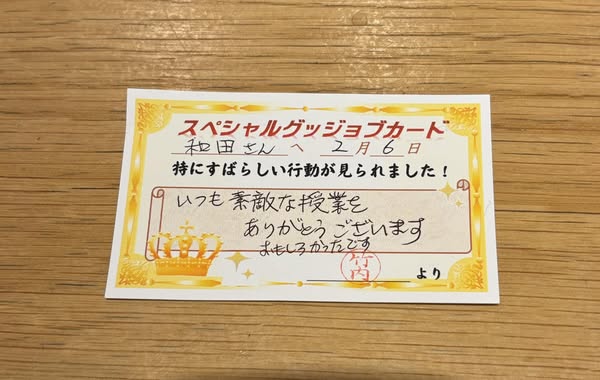 スペシャルグッジョブカード
和田さん へ 2月6日
特にすばらしい行動が見られました！
いつも素敵な授業を
ありがとうございます
おもしろかったです
竹内 より